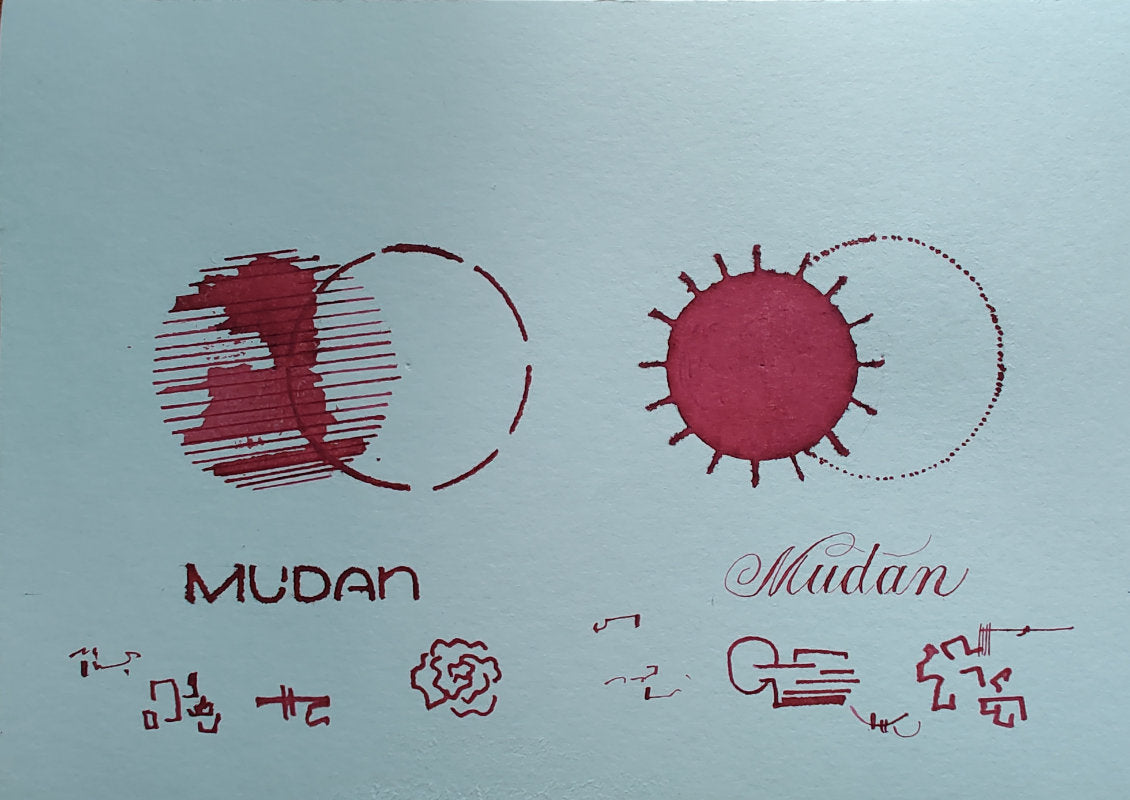 MUDAN
Mùdān